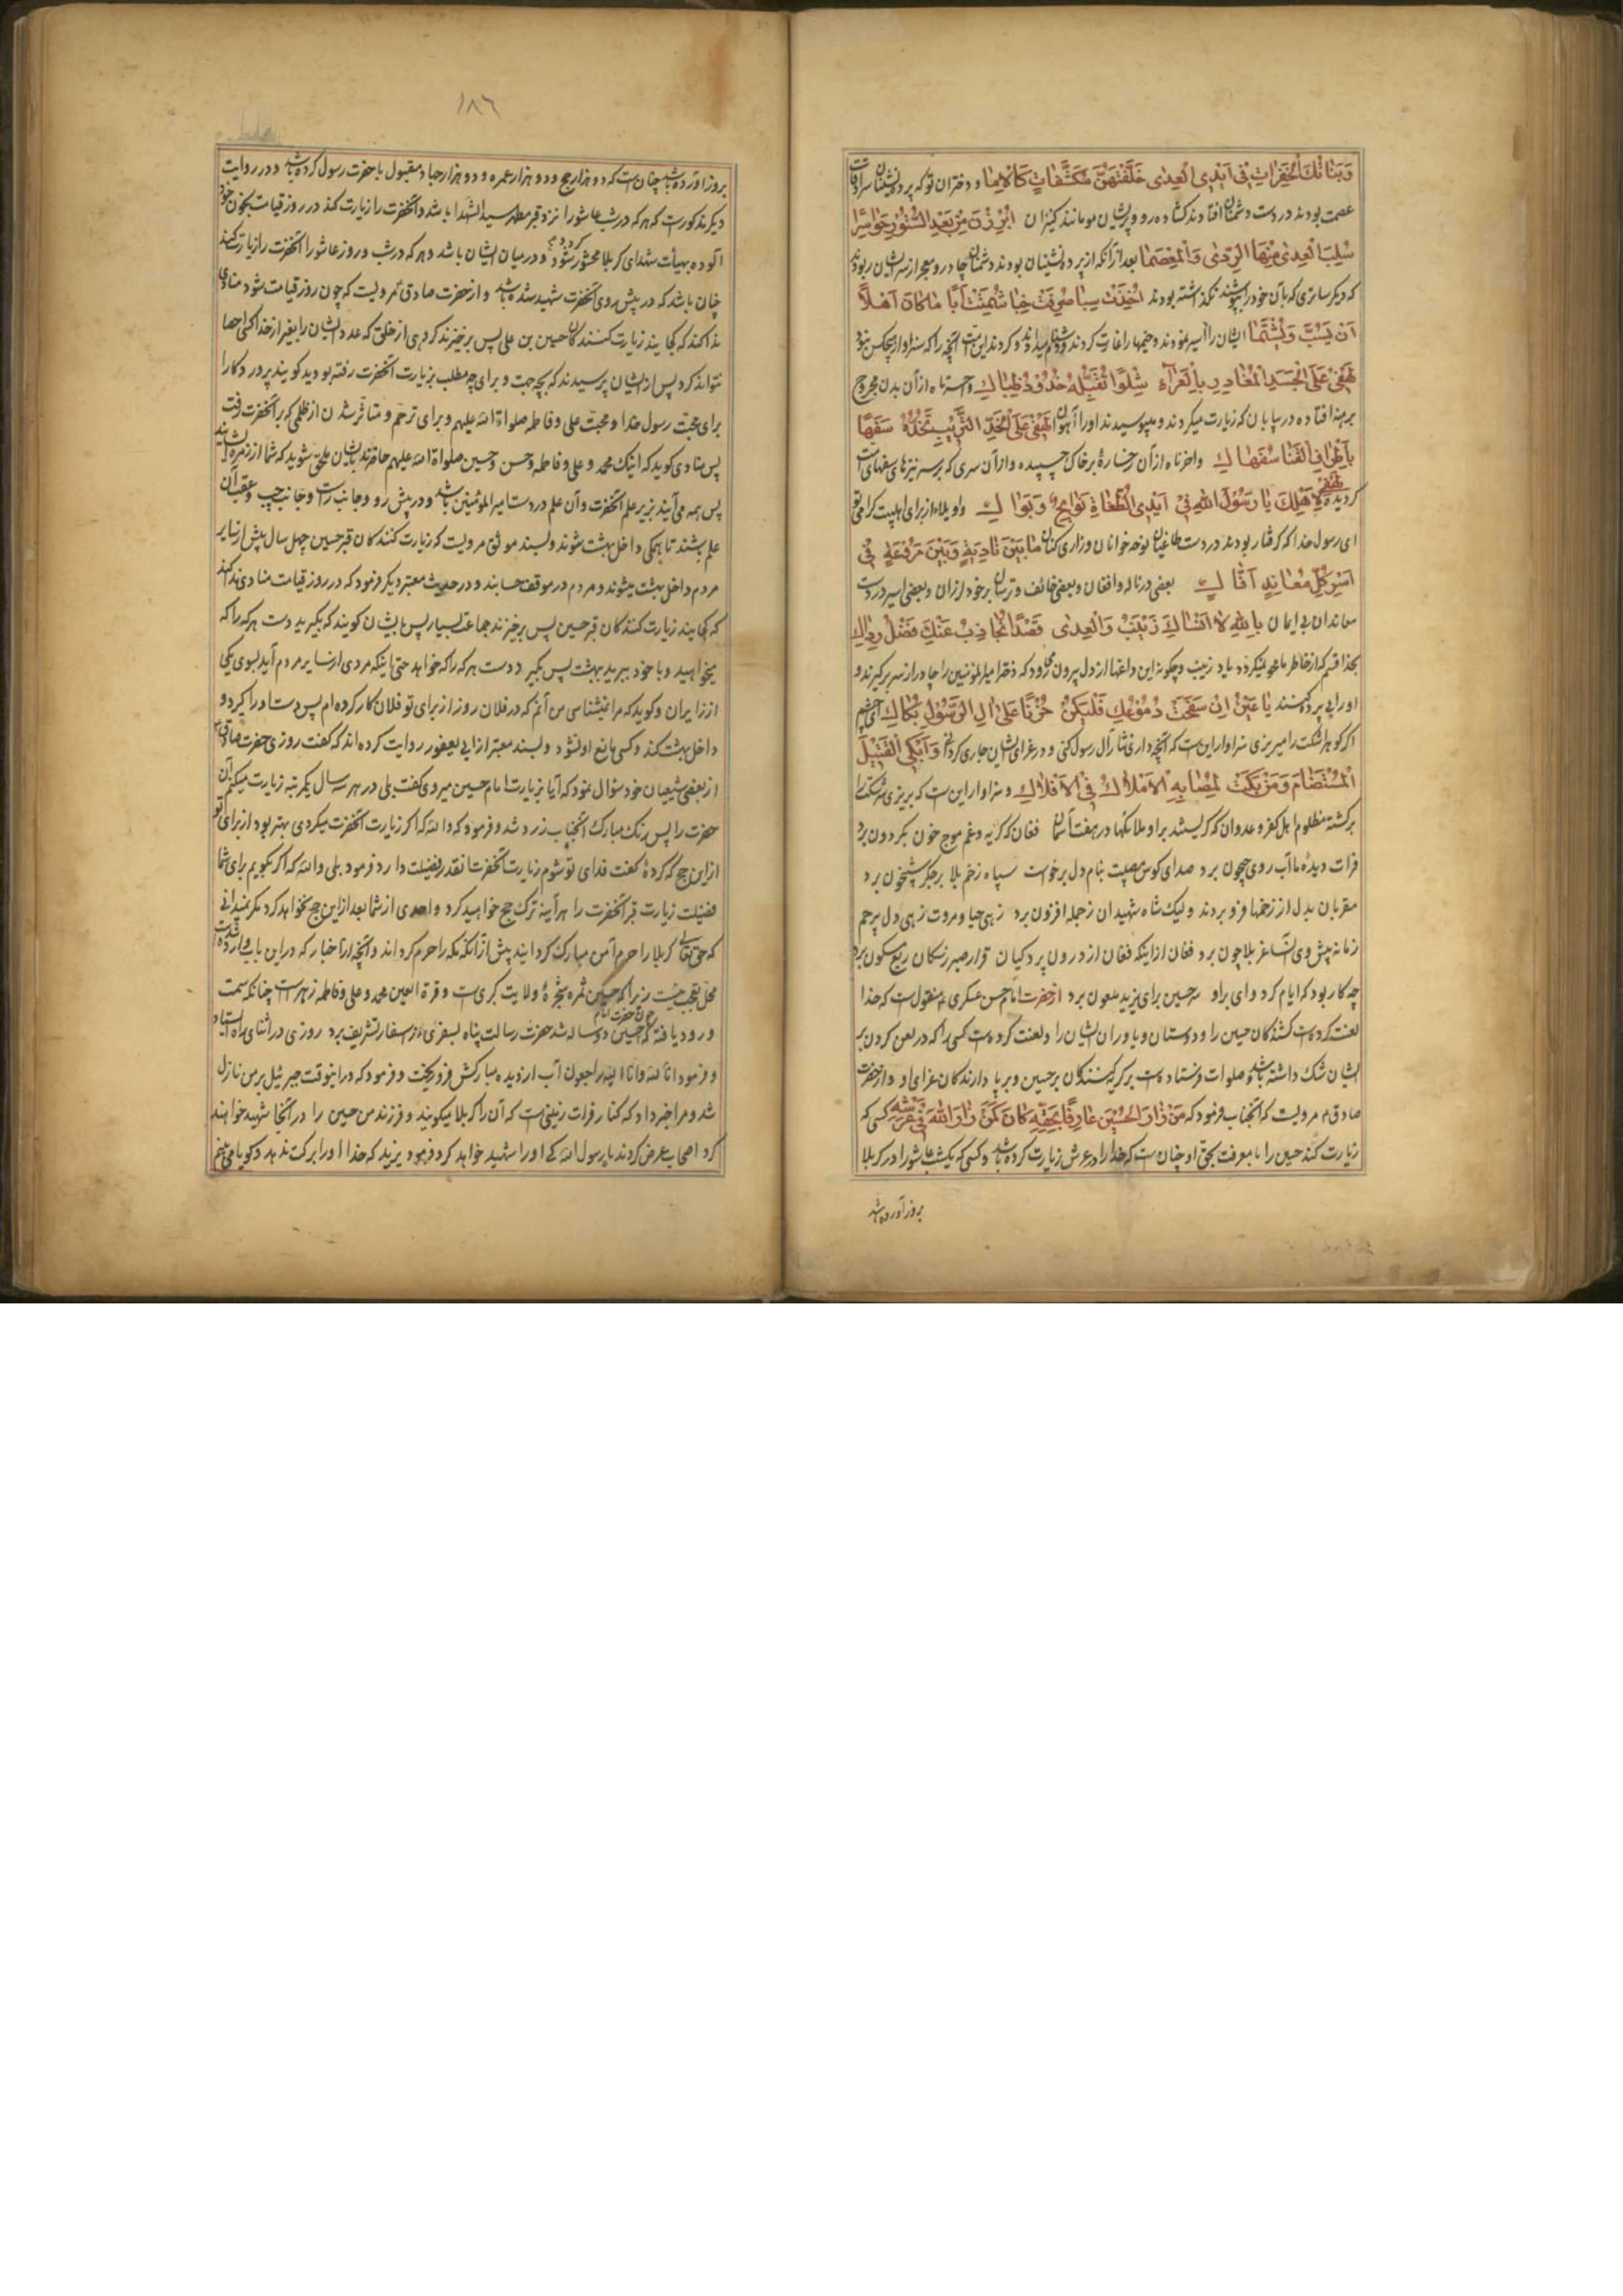 وَبَنَاتُكَ الْخَفِرَاتُ فِی أَیْدِی الْعِدٰی خَلَّفْتَهُنَّ مُکَشَّفَاتٍ کَالْاِمٰا و دختران تو که پرده نشینان سرادقات
عصمت بودند در دست دشمنان افتادند گشاده رو و پریشان مو مانند کنیزان اُبْرِزْنَ مِنْ بَعْدِ السُّتُورِ حَوٰاسِرًا
سُلِبَ الْعِدٰی مِنْهَا الرِّدٰی وَالْمِعْصَمٰا بعد از آنکه از پرده نشینیان بودند دشمنان چادر و معجر از سر ایشان ربودند
که دیگر ساتری که بآن خود را بپوشند نگذاشته بودند اُخِذَتْ سِبٰا صُرِفَتْ خِبٰا شُتِمَتْ اَبًا مٰا کٰانَ اَهْلًا
اَنْ یُسَبَّ وَیُشْتَمٰا ایشان را اسیر نمودند و خیمها را غارت کردند و دشنام میدادند و کردند این است آنچه را که سزاوار هیچکس نبود
لَهْفِی عَلَی الْجَسَدِ الْمُغٰادِرِ بِالْعَرٰاءِ شِلْوًا تُقَبِّلُهُ خُدُودُ ظِبٰاكِ وا حسرتاه از آن بدن مجروح
برهنه افتاده در بیابان که زیارت میکردند و میبوسیدند او را آهوان لَهْفِی عَلَی الْخَدِّ التَّرِیبِ تَخُدُّهُ سَفَهًا
بِاَطْرٰافِ الْقَنٰا سُفَهٰاكِ واحزناه از آن رخساره بر خاک چسپیده و از آن سری که بر سر نیزهای سفهای امت
گردیده لَهْفِی لِاَهْلِكَ یٰا رَسُولَ اللهِ فِی اَیْدِی الطُّغٰاةِ نَوٰایِحٌ وَبَوٰاكِ واویلاه از برای اهلبیت گرامی تو
ای رسول خدا که گرفتار بودند در دست طاغیان نوحه خوانان و زاری کنان مٰا بَیْنَ نٰادِبَةٍ وَبَیْنَ مَرْوَعَةٍ فِی
اَسْرِ کُلِّ مُعٰانِدٍ اَفّٰاكٍ بعضی در ناله و افغان و بعضی خائف و ترسان بر خود لرزان و بعضی اسیر در دست
معاندان بی ایمان بِاللهِ لٰا اَنْسٰاكِ زَیْنَبُ وَالْعِدٰی قَصْدًا تُجٰاذِبُ عَنْكِ فَضْلَ رِدٰاكِ
بخدا قسم که از خاطر ما محو نمیگردد یاد زینب و چگونه این داغها از دل بیرون میرود که دختر امیرالمؤمنین را چادر از سر برگیرند و
او را بی پرده کنند یٰا عَیْنُ اِنْ سَفَحْتِ دُمُوعَكِ فَلْیَکُنْ حُزْنًا عَلٰی اٰلِ الرَّسُولِ بُکٰاكِ ای چشم
اگر گوهر اشکت را میریزی سزاوار این است که آنچه داری نثار آل رسول کنی و در عزای ایشان جاری گردانی وَاَبْکِی الْقَتِیلَ
الْمُسْتَضٰامَ وَمَنْ بَکَتْ لِمُصٰابِهِ الْاَمْلٰاكُ فِی الْاَفْلٰاكِ و سزاوار این است که بریزی سرشکت را
بر کشته مظلوم اهل کفر و عدوان که گریستند بر او ملائکها در هفت آسمان فغان که گریه و غم موج خون بگردون برد
فرات دیدهٔ ما آب روی جیحون برد صدای کوس مصیبت بنام دل برخواست سپاه زخم بلا بر جگر شبیخون برد
مقربان بدل از زخمها فزو بردند و لیک شاه شهیدان ز جمله افزون برد زهی حیا و مروت زهی دل پرحم
زمانه پیش وی آن ساغر بلا چون برد فغان از اینکه فغان از درون پردگیان قرار صبر ز سکان ربع مسکون برد
چه کار بود که ایام کرد وای بر او سر حسین برای یزید ملعون برد از حضرت امام حسن عسکری ع منقول است که خدا
لعنت کرده است کشندگان حسین را و دوستان و یاوران ایشان را و لعنت کرده است کسی را که در لعن کردن بر
ایشان شک داشته باشد و صلوات فرستاده است بر گریه کنندگان بر حسین و برپا دارندگان عزای او و از حضرت
صادق ع مرویست که آنجناب فرمود که مَنْ زٰارَ الْحُسَیْنَ عٰارِفًا بِحَقِّهِ کٰانَ کَمَنْ زٰارَ اللهَ فِی عَرْشِهِ کسی که
زیارت کند حسین را با معرفت بحق او چنان است که خدا را در عرش زیارت کرده باشد و کسی که یکشب عاشورا در کربلا
بروز آورده باشد
١٨٦
بروز آورده باشد چنان است که دو هزار حج و دو هزار عمره و دو هزار جهاد مقبول با حضرت رسول کرده باشد و در روایت
دیگر مذکورست که هر که در شب عاشورا نزد قبر مطهر سیدالشهدا باشد و آنحضرت را زیارت کند در روز قیامت بخون خود
آلوده بهیأت شهدای کربلا محشور شود و در میان ایشان باشد و هر که در شب و روز عاشورا آنحضرت را زیارت کند
چنان باشد که در پیش روی آنحضرت شهید شده باشد و از حضرت صادق ع مرویست که چون روز قیامت شود منادی
ندا کند که کجایند زیارت کنندگان حسین بن علی پس برخیزند گروهی از خلق که عدد ایشان را بغیر از خدا کسی احصا
نتواند کرد پس از ایشان پرسیدند که بچه جهت و برای چه مطلب بزیارت آنحضرت رفته بودید گویند پروردگارا
برای محبت رسول خدا و محبت علی و فاطمه صلواة الله علیهم و برای ترحم و متأثر شدن از ظلمی که بر آنحضرت رفت
پس منادی گوید که اینک محمد و علی و فاطمه و حسن و حسین صلواة الله علیهم حاضرند بایشان ملحق شوید که شما از زمره ایشانید
پس همه می آیند بزیر علم آنحضرت و آن علم در دست امیرالمؤمنین باشد و در پیش رو و جانب راست و جانب چپ و عقب آن
علم باشند تا همگی داخل بهشت شوند و بسند موثق مرویست که زیارت کنندگان قبر حسین چهل سال پیش از سایر
مردم داخل بهشت میشوند و مردم در موقف حسابند و در حدیث معتبر دیگر فرمود که در روز قیامت منادی ندا کند
که کجایند زیارت کنندگان قبر حسین پس برخیزند جماعت بسیار پس بایشان گویند که بگیرید دست هر که را که
میخواهید و با خود ببرید بهشت پس بگیرد دست هر که را که خواهد حتی اینکه مردی از سایر مردم آید بسوی یکی
از زایران و گوید که مرا نمیشناسی من آنم که در فلان روز از برای تو فلان کار کرده ام پس دست او را گیرد و
داخل بهشت کند و کسی مانع او نشود و بسند معتبر از ابی یعفور روایت کرده اند که گفت روزی حضرت صادق ع
از بعضی شیعیان خود سؤال نمود که آیا بزیارت امام حسین میروی گفت بلی در هر سه سال یکمرتبه زیارت میکنم آن
حضرت را پس رنک مبارک آنجناب زرد شد و فرمود که والله که اگر زیارت آنحضرت میکردی بهتر بود از برای تو
از این حج که کردهٔ گفت فدای تو شوم زیارت آنحضرت اینقدر فضیلت دارد فرمود بلی والله که اگر بگویم برای شما
فضیلت زیارت قبر آنحضرت را هر آینه ترک حج خواهید کرد و احدی از شما بعد از این حج نخواهد کرد مگر نمیدانی
که حق تعالی کربلا را حرم آمن مبارک گردانید پیش از آنکه مکه را حرم گرداند و آنچه از اخبار که در این باب وارد شده
محل تعجب نیست زیرا که حسین ثمره شجرهٔ ولایت کبری است و قرة العین محمد و علی و فاطمه زهراست چنانکه سمت
ورود یافته که چون حضرت امام حسین دو ساله شد حضرت رسالت پناه بسفری از اسفار تشریف برد روزی در اثنای راه ایستاد
و فرمود انا لله وانا الیه راجعون آب از دیده مبارکش فرو ریخت و فرمود که در اینوقت جبرئیل بر من نازل
شد و مرا خبر داد که کنار فرات زمینی است که آن را کربلا میگویند و فرزند من حسین را در آنجا شهید خواهند
کرد اصحاب عرض کردند یا رسول الله که او را شهید خواهد کرد فرمود یزید که خدا او را برکت ندهد و گویا می بینم